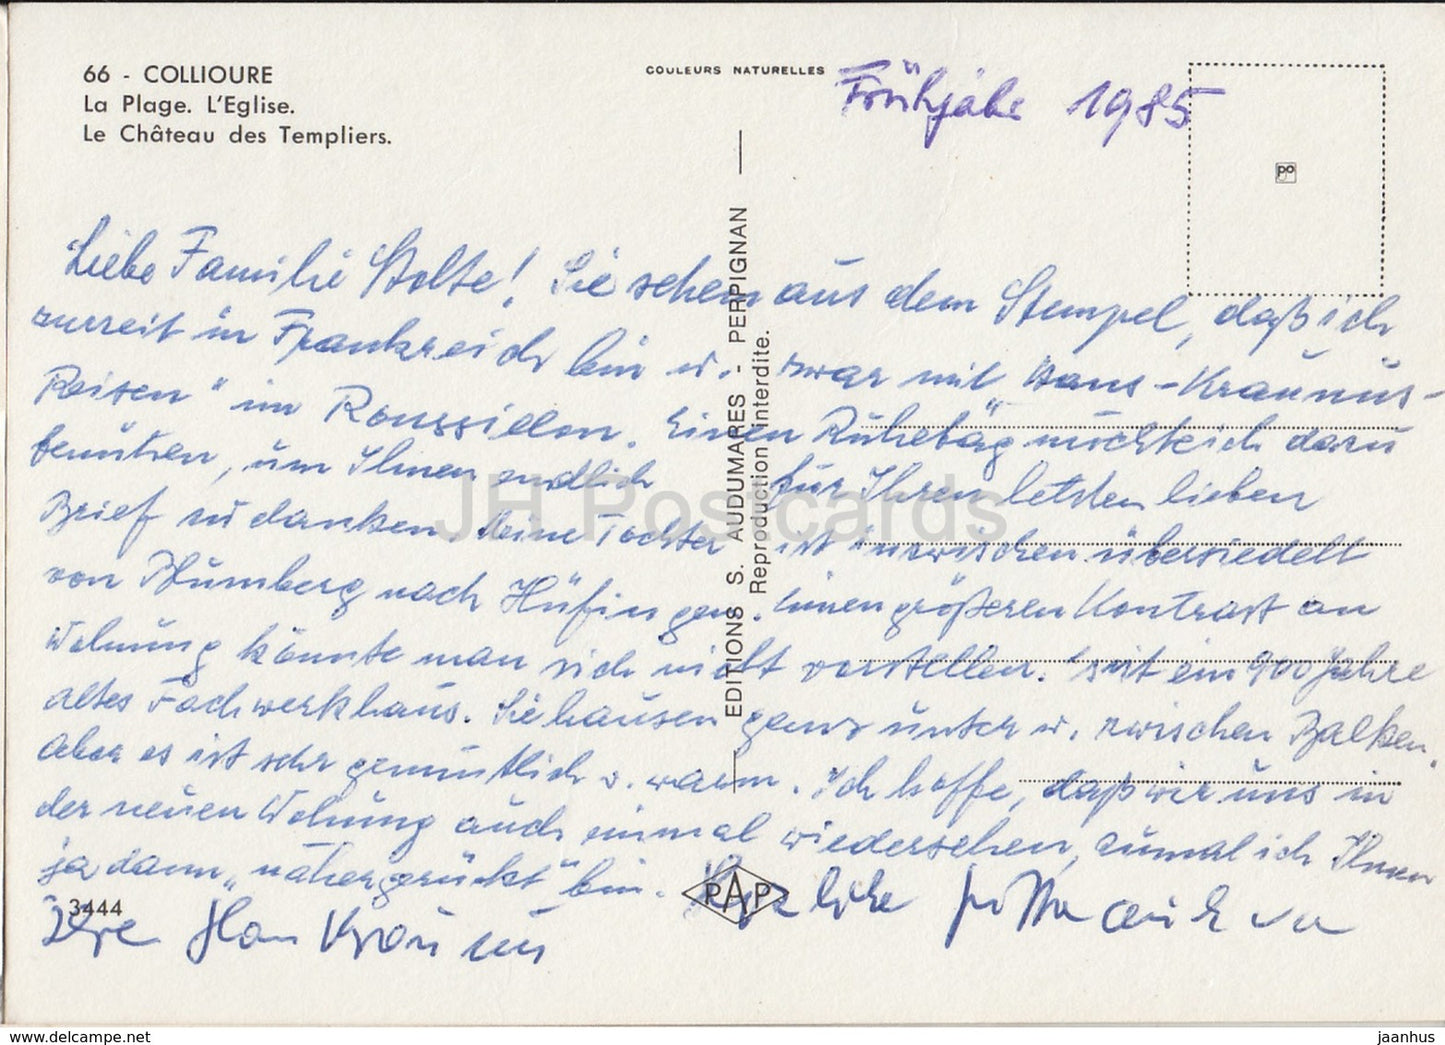 66 - COLLIOURE
La Plage. L'Eglise.
Le Château des Templiers.
COULEURS NATURELLES
Frühjahr 1985
po
Liebe Familie Stolte! Sie sehen aus dem Stempel, daß ich
zurzeit in Frankreich bin u. zwar mit „Hans-Kraunus-
Reisen" im Roussillon. Einen Ruhetag möchte ich dazu
benützen, um Ihnen endlich für Ihren letzten lieben
Brief zu danken. Meine Tochter ist inzwischen übersiedelt
von Blumberg nach Hüfingen. Einen größeren Kontrast an
Wohnung könnte man sich nicht vorstellen. Seit ein 900 Jahre
altes Fachwerkhaus. Sie hausen ganz unter u. zwischen Balken.
Aber es ist sehr gemütlich u. warm. Ich hoffe, daß wir uns in
der neuen Wohnung auch einmal wiedersehen, zumal ich Ihnen
ja dann „näher gerückt" bin. Herzliche Grüße auch von
Ihre
EDITIONS S. AUDUMARES - PERPIGNAN
Reproduction interdite.
3444
PAP
JH Postcards
www.delcampe.net
jaanhus